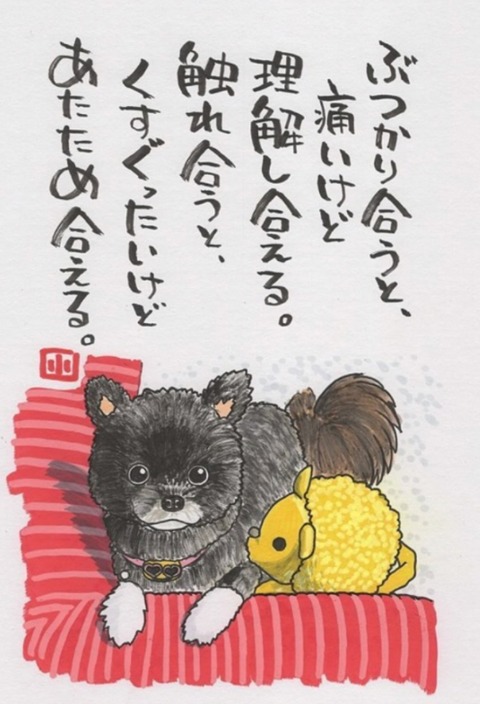 ぶつかり合うと、
痛いけど
理解し合える。
触れ合うと、
くすぐったいけど
あたため合える。